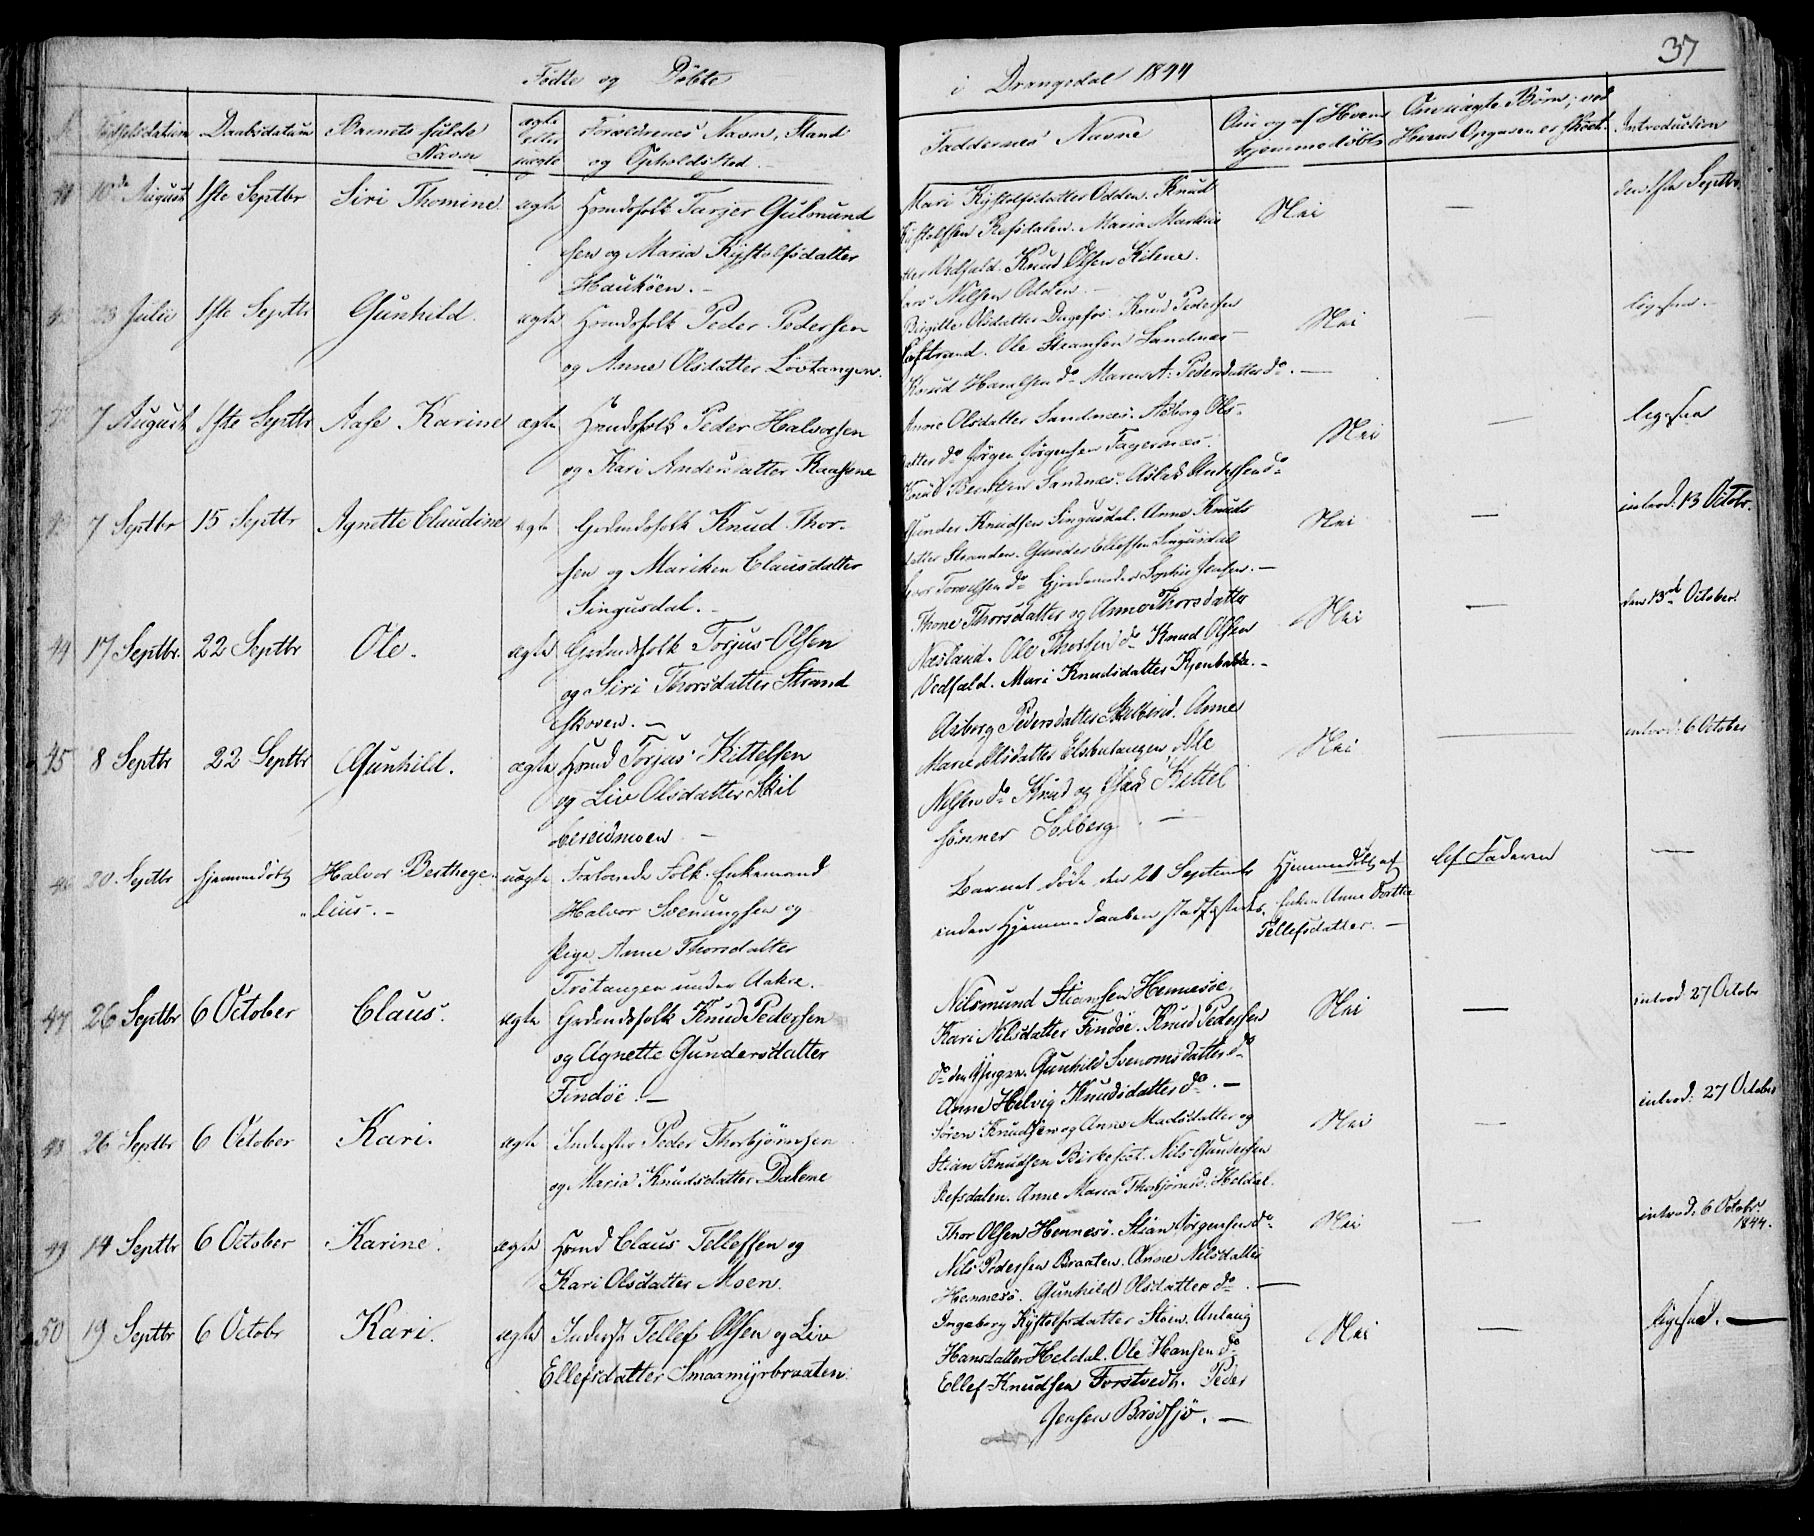 37
Födte og Döbte
i Drangedal 1844
No Födselsdatum Daabsdatum Barnets fulde
Navn
ægte
eller
uægte
Forældrenes Navn, Stand
og Opholdssted.
Faddernes Navne
Om og af Hvem
hjemmedöbt
Om uægte Börn; ved
Hvem Opgaven er skeet.
Introduction
41 10de August 1ste Septbr Siri Thomine ægte Huusfolk Tarjer Gulmund
sen og Maria Kjøstolfsdatter
Haukøen. -
Mari Kjøstolfsdatter Odden. Knud
Kjøstolfsen Refsdalen. Maria Markus
Vedfald. Knud Olsen Kilene.
Nilsen Odden. -
Nei — den 1ste Septbr.
23 Julii 1ste Septbr Gunhild. ægte Huusfolk Peder Pedersen
og Anne Olsdatter Løvtangen.
Birgitte Olsdatter Dagefos. Knud Pedersen
Ole Steansen Sandnæs
Knud Hansen do Maren A: Pedersdatter do. —
Nei — ligesaa. -
7 August 1ste Septbr Aase Karine ægte Huusfolk Peder Halvorsen
og Kari Andersdatter Kaasene
Anne Olsdatter Sandnæs. Asborg Ols-
datter do Jörgen Jörgensen Fagernæs.
Knud Bentsen Sandnæs. Aslak Andersen do
Nei — ligesaa
7 Septbr 15 Septbr Agnette Claudine ægte Grdmdsfolk Knud Thor-
sen og Mariken Clausdatter
Singusdal. -
Gunder Knudsen Singusdal. Anne Knuds
datter Stranden. Gunder Ellefsen Singusdal
do Gjordemoder Sophie Jensen. -
Nei — introd: 13 Octbr.
44 17 Septbr. 22 Septbr Ole. ægte Grdmdsfolk Torjus Olsen
og Siri Thorsdatter Strand
skoven. —
Thone Thorsdatter og Anne Thorsdatter
Næsland. Ole Thorsen do Knud Olsen
Vedfald. Mari Knudsdatter Kjenbakke. -
Nei — den 13de October.
45 8 Septbr 22 Septbr Gunhild. ægte Huusmd Torjus Kittelsen
og Liv Olsdatter Skil
bereidmoen -
Asborg Pedersdatter Skilbreid. Anne
Marie Olsdatter Elsbutangen. Ole
Nilsen do Knud og Kittel
sønner Solberg. —
Nei — introd: 6 October
46 20. Septbr hjemmedöbt Halvor Berthege-
lius. - uægte Forlovede Folk. Enkemand
Halvor Svenungsen og
Pige Anne Thorsdatter
Trötangen under Aakre.
Barnet døde den 21 Septembr
inden Hjemmedaaben stadfæstedes.
Hjemmedöbt af
Enken Anne Dorthe
Tellefsdatter. -
Af Faderen —
47 26 Septbr 6 October Claus. ægte Grdmdsfolk Knud Pedersen
og Agnette Gundersdatter
Findøe. —
Nilsmund Stiansen Hennesøe,
Kari Nilsdatter Findøe. Knud Pedersen
do den Yngre. Gunhild Svenomsdatter do
Anne Helvig Knudsdatter do. -
Nei — introd. 27 Octobr
48 26 Septbr 6 October Kari. ægte Inderster Peder Thorbjörnsen
og Maria Knudsdatter Dalene
Sören Knudsen og Anne Madsdatter og
Stian Knudsen Birkeset. Nils Gundersen
Refsdalen. Anne Maria Thorbjörnsd. Heldal.
Nei — introd: 27 October
49 14 Septbr 6 October Karine. ægte Huusmd Claus Tellefsen og
Kari Olsdatter Moen.
Thor Olsen Hennesö. Stian Jörgensen do
Nils Pedersen Braaten. Anne Nilsdatter
Hennesö. Gunhild Olsdatter do. —
Nei — introd. 6 Octobr.
1844.
50 19 Septbr 6 Octobr Kari. ægte Inderst Tellef Olsen og Liv
Ellefsdatter Smaamyrbraaten.
Ingeborg Kjøstolfsdatter Stöen. Anlaug
Hansdatter Heldal. Ole Hansen do
Ellef Knudsen Forstvedt. Peder
Jensen Brødsjø. —
Nei — ligesaa. —